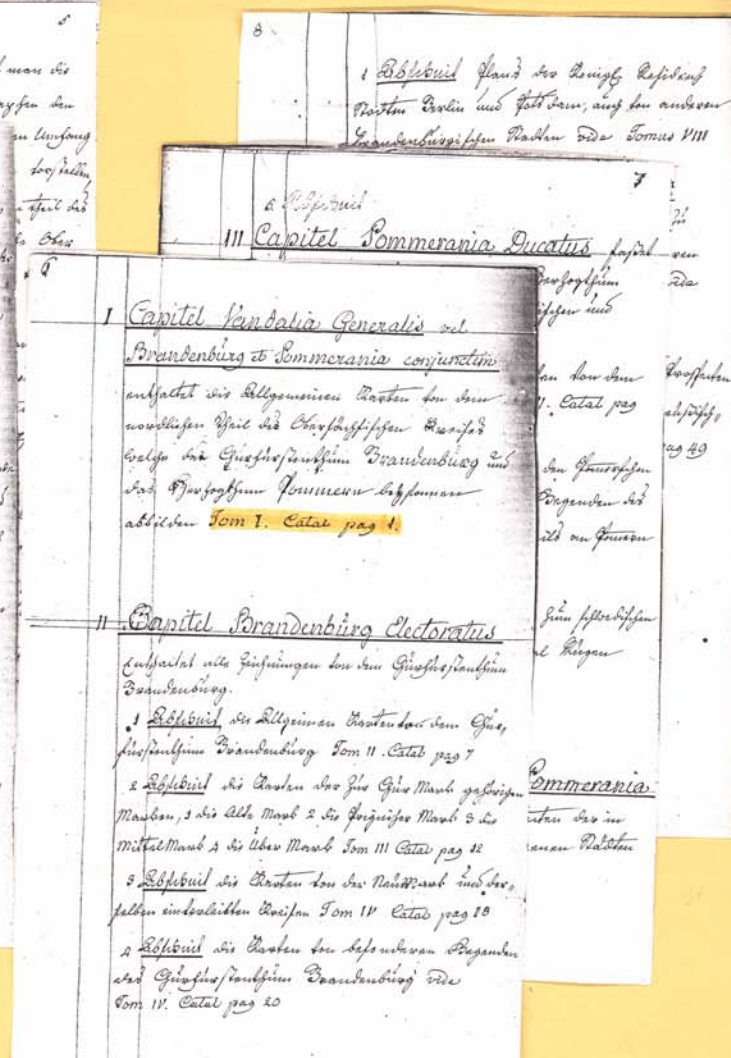 5
man die
den
Umfang
vorstellen
theil des
Ober
8
1 Abschnit Plans der Königl. Residenz
Städten Berlin und Potsdam, auch von anderen
Brandenburgischen Städten vide Tomus VIII
7
6. Abschnit
III Capitel Pommerania Ducatus fasset
Herzogthum
ischen und
von dem
Catal pag
den Pomerschen
Gegenden des
an Pomern
zum schwedischen
Rügen
Pommerania
der in
Städten
zu
vide
Prospecten
pag 49
6
I Capitel Vandalia Generalis vel
Brandenburg et Pommerania conjunctim
enthaltet die Allgemeinen Karten von dem
nordlichen Theil des Obersächsischen Kreises
welche das Churfürstenthum Brandenburg und
das Herzogthum Pommern beysammen
abbilden Tom I. Catal pag 1.
II Capitel Brandenburg Electoratus
Enthaltet alle Zeichnungen von dem Churfürstenthum
Brandenburg.
1 Abschnit, die Allgeinen Karten von dem Chur„
fürstenthum Brandenburg Tom II. Catal pag 7
2 Abschnit die Karten der zur Chur Mark gehörigen
Marken, 1 die Alte Mark 2 die Prignitzer Mark 3 die
Mittel Mark 4 die Uker Mark Tom III Catal pag 12
3 Abschnit die Karten von der NeuMark und der„
selben einverleibten Kreisen Tom IV Catal pag 18
4 Abschnit die Karten von besonderen Gegenden
des Churfürstenthum Brandenburg vide
Tom IV. Catal pag 20